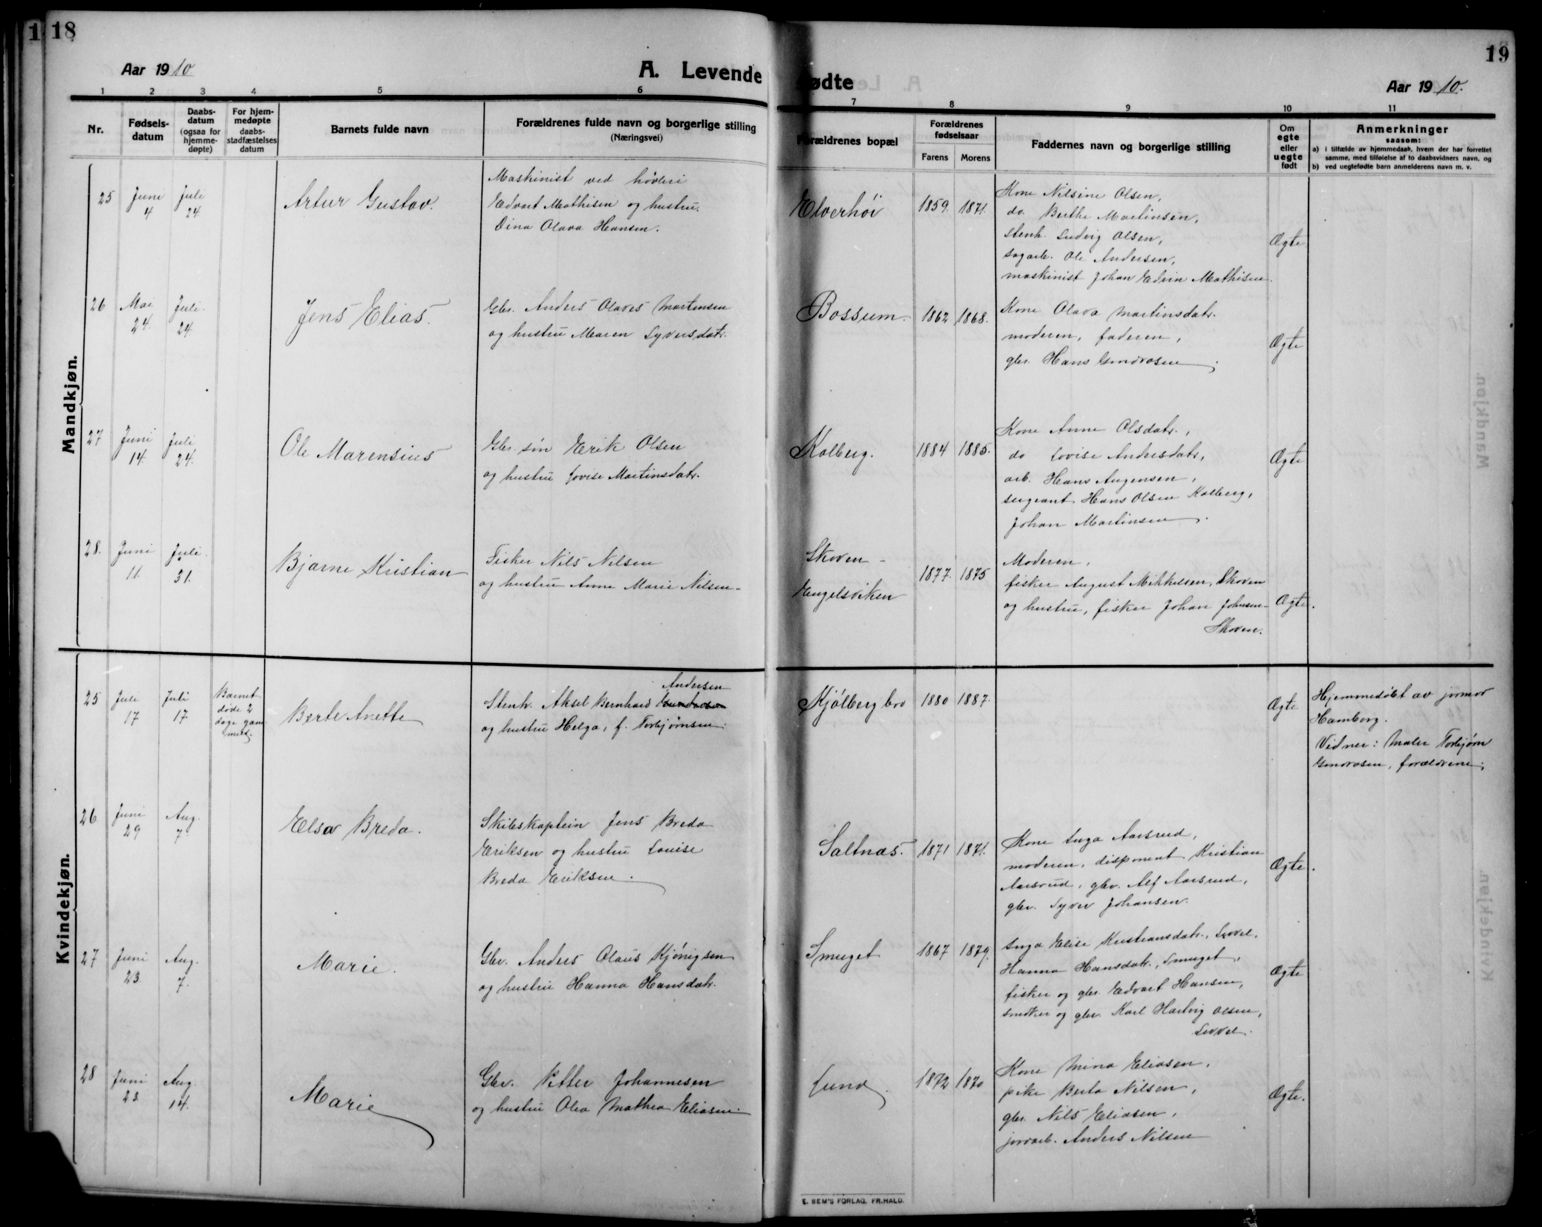 18
Aar 1910
A. Levende
1 2 3 4 5 6
Nr.
Fødsels-
datum
Daabs-
datum
(ogsaa for
hjemme-
døpte)
For hjem-
medøpte
daabs-
stadfæstelses
datum
Barnets fulde navn
Forældrenes fulde navn og borgerlige stilling
(Næringsvei)
Mandkjøn.
25 Juni 4 Juli 24 Artur Gustav.
Maskinist ved høvleri
Edvart Mathisen og hustru
Dina Olava Hansen.
26 Mai 24. Juli 24. Jens Elias.
Gbr. Anders Olaves Martinsen
og hustru Maren Syversdatr.
27 Juni 14. Juli 24. Ole Marensius
Gbr. søn Erik Olsen
og hustru Lovise Martinsdatr.
28. Juni 11. Juli 31. Bjarne Kristian
Fisker Nils Nilsen
og hustru Anne Marie Nilsen
Kvindekjøn.
25 Juli 17 Juli 17 Barnet
døde 2
dage gam
melt. Berte Anette
Andersen
Stenh. Aksel Bernhard
og hustru Helga, f. Torbjørnsen.
26 Juni 29 Aug. 7 Elsa Breda.
Skibskaptein Jens Breda
Eriksen og hustru Louise
Breda Eriksen.
27 Juni 23. Aug. 7. Marie.
Gbr. Anders Olaus Kjønigsen
og hustru Hanna Hansdatr.
28 Juni 28. Aug. 14. Marie
Gbr. Petter Johannesen
og hustru Olea Mathea Eliasen.
19
ødte
Aar 1910.
7 8 9 10 11
Forældrenes bopæl
Forældrenes
fødselsaar
Farens Morens
Faddernes navn og borgerlige stilling
Om
egte
eller
uegte
født
Anmerkninger
saasom:
a) i tilfælde av hjemmedaab, hvem der har forrettet
samme, med tilføielse af to daabsvidners navn, og
b) ved uegtefødte barn anmelderens navn m. v.
Elverhöi 1859 1871.
Kone Nilsine Olsen,
do. Berthe Martinsen,
stenh. Ludvig Olsen,
sagarb. Ole Andersen,
maskinist Johan Edvin Mathisen
Ægte
Bossum. 1862 1868.
Kone Olava Martinsdatr.
moderen, faderen,
gbr. Hans Gundersen
Ægte
Kolberg. 1884 1885.
Kone Anne Olsdatr.,
do Lovise Andersdatr,
arb. Hans Augensen,
sergeant Hans Olsen Kolberg,
Johan Martinsen.
Ægte
Skoven
Engelsviken 1877. 1875
Moderen,
fisker August Mikkelsen, Skoven
og hustru, fisker Johan Johnsen
Skoven.
Ægte.
Kjølberg bro 1880 1887. Ægte
Hjemmedøbt av jormor
Hamborg.
Vidner: Maler Torbjørn
Gundersen, forældrene.
Saltnæs. 1871 1871.
Kone Inga Aarsrud,
moderen, disponent Kristian
Aarsrud, gbr. Alf Aarsrud,
gbr. Syver Johansen.
Ægte.
Smuget 1867 1879.
Inga Elise Kristiansdatr.
Hanna Hansdatr., Smuget,
fisker og gbr Edvart Hansen,
snedker og gbr. Karl Hartvig Olsen,
Ægte
Lund. 1872 1870
Kone Mina Eliasen,
pike Berta Nilsen,
gbr. Nils Eliasen,
jordarb. Anders Nilsen
Ægte.
E. SEM'S FORLAG, FR.HALD.